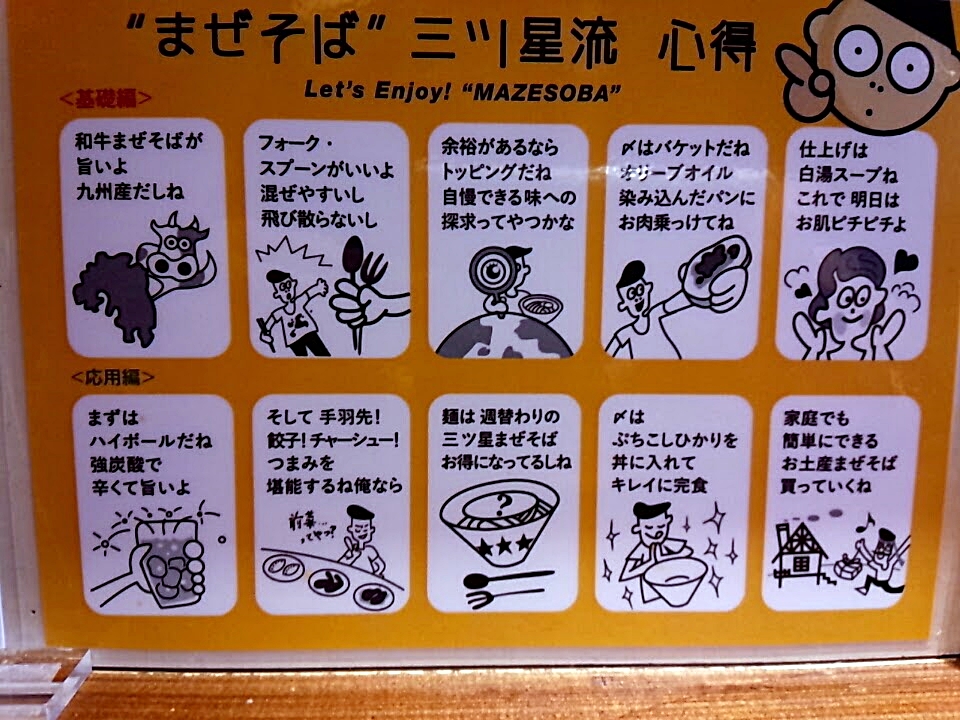 “まぜそば” 三ツ星流 心得
Let's Enjoy! “MAZESOBA”
<基礎編>
和牛まぜそばが
旨いよ
九州産だしね
フォーク・
スプーンがいいよ
混ぜやすいし
飛び散らないし
余裕があるなら
トッピングだね
自慢できる味への
探求ってやつかな
〆はバケットだね
オリーブオイル
染み込んだパンに
お肉乗っけてね
仕上げは
白湯スープね
これで 明日は
お肌ピチピチよ
<応用編>
まずは
ハイボールだね
強炭酸で
辛くて旨いよ
そして 手羽先!
餃子!チャーシュー!
つまみを
堪能するね俺なら
前菜…
ってやつ?
麺は 週替わりの
三ツ星まぜそば
お得になってるしね
?
〆は
ぷちこしひかりを
丼に入れて
キレイに完食
家庭でも
簡単にできる
お土産まぜそば
買っていくね